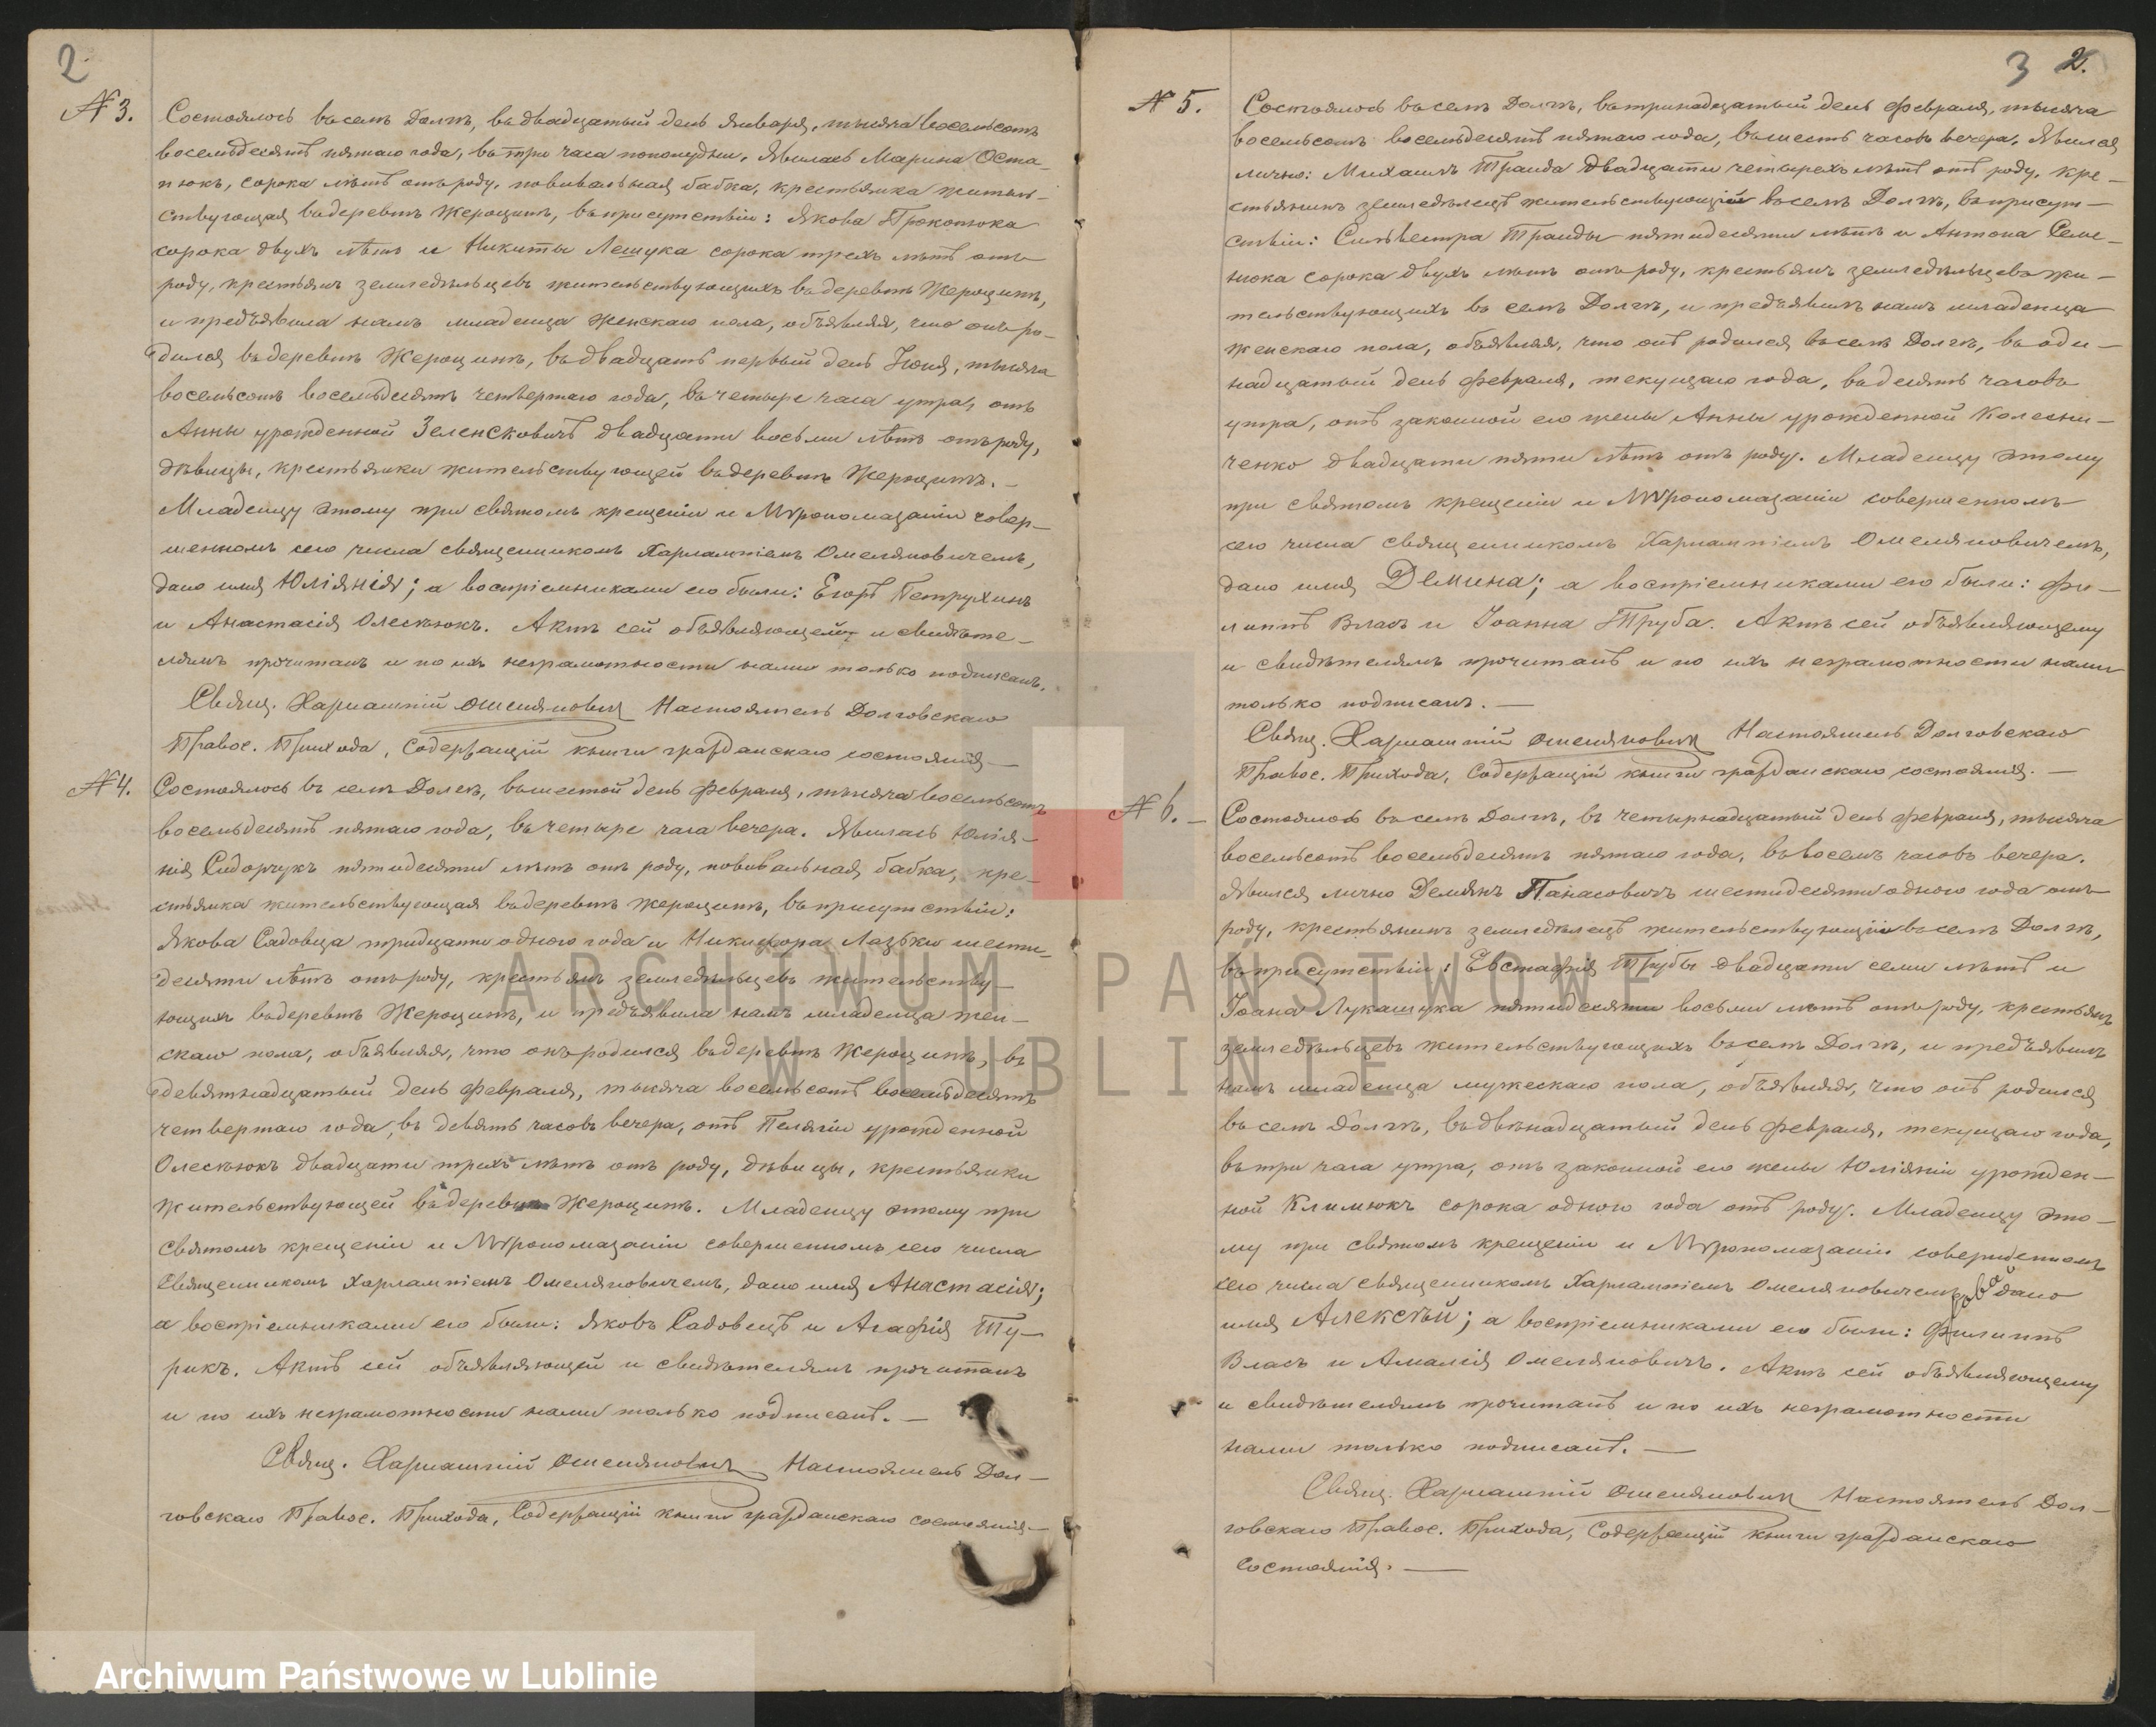 2
№ 3.
Состоялось въ селѣ Долгѣ, въ двадцатый день Января, тысяча восемьсотъ
восемьдесятъ пятаго года, въ три часа пополудни. Явилась Марина Оста-
пюкъ, сорока лѣтъ отъ роду, повивальная бабка, крестьянка житель-
ствующая въ деревнѣ Жерощинѣ, въ присутствіи: Якова Прокопюка
сорока двухъ лѣтъ и Никиты Лещука сорока трехъ лѣтъ отъ
роду, крестьянъ земледѣльцевъ жительствующихъ въ деревнѣ Жерощинѣ,
и предъявила намъ младенца женскаго пола, объявляя, что онъ ро-
дился въ деревнѣ Жерощинѣ, въ двадцать первый день Іюня, тысяча
восемьсотъ восемьдесятъ четвертаго года, въ четыре часа утра, отъ
Анны урожденной Зеленсковичъ двадцати восьми лѣтъ отъ роду,
дѣвицы, крестьянки жительствующей въ деревнѣ Жерощинѣ. —
Младенцу этому при святомъ крещеніи и Мѵропомазаніи совер-
шенномъ сего числа священникомъ Харлампіемъ Омеляновичемъ,
дано имя Юліянія; а воспріемниками его были: Егоръ Петрухинъ
и Анастасія Олесѣюкъ. Актъ сей объявляющей и свидѣте-
лямъ прочитанъ и по ихъ неграмотности нами только подписанъ.
Свящ. Харлампій Омеляновичъ Настоятель Долговскаго
Правос. Прихода, Содержащій книги гражданскаго состоянія —
№ 4.
Состоялось въ селѣ Долгѣ, въ шестой день Февраля, тысяча восемьсотъ
восемьдесятъ пятаго года, въ четыре часа вечера. Явилась Юлія-
нія Сидорчукъ пятидесяти лѣтъ отъ роду, повивальная бабка, кре-
стьянка жительствующая въ деревнѣ Жерощинѣ, въ присутствіи:
Якова Садовца тридцати одного года и Никифора Лазьки шести-
десяти лѣтъ отъ роду, крестьянъ земледѣльцевъ жительству-
ющихъ въ деревнѣ Жерощинѣ, и предъявила намъ младенца жен-
скаго пола, объявляя, что онъ родился въ деревнѣ Жерощинѣ, въ
девятнадцатый день Февраля, тысяча восемьсотъ восемьдесятъ
четвертаго года, въ девять часовъ вечера, отъ Пелагіи урожденной
Олесѣюкъ двадцати трехъ лѣтъ отъ роду, дѣвицы, крестьянки
жительствующей въ деревнѣ Жерощинѣ. Младенцу этому при
святомъ крещеніи и Мѵропомазаніи совершенномъ сего числа
священникомъ Харлампіемъ Омеляновичемъ, дано имя Анастасія;
а воспріемниками его были: Яковъ Садовецъ и Агафія Ту-
рикъ. Актъ сей объявляющей и свидѣтелямъ прочитанъ
и по ихъ неграмотности нами только подписанъ. —
Свящ. Харлампій Омеляновичъ Настоятель Дол-
говскаго Правос. Прихода, Содержащій книги гражданскаго состоянія —
3 2.
№ 5.
Состоялось въ селѣ Долгѣ, въ тринадцатый день Февраля, тысяча
восемьсотъ восемьдесятъ пятаго года, въ шесть часовъ вечера. Явился
лично: Михаилъ Транда двадцати четырехъ лѣтъ отъ роду, кре-
стьянинъ земледѣлецъ жительствующій въ селѣ Долгѣ, въ присут-
ствіи: Сильвестра Транды пятидесяти лѣтъ и Антона Семе-
нюка сорока двухъ лѣтъ отъ роду, крестьянъ земледѣльцевъ жи-
тельствующихъ въ селѣ Долгѣ, и предъявилъ намъ младенца
женскаго пола, объявляя, что онъ родился въ селѣ Долгѣ, въ оди-
надцатый день Февраля, текущаго года, въ десять часовъ
утра, отъ законной его жены Анны урожденной Колесни-
ченко двадцати пяти лѣтъ отъ роду. Младенцу этому
при святомъ крещеніи и Мѵропомазаніи совершенномъ
сего числа священникомъ Харлампіемъ Омеляновичемъ,
дано имя Домина; а воспріемниками его были: Фи-
липпъ Власъ и Іоанна Труба. Актъ сей объявляющему
и свидѣтелямъ прочитанъ и по ихъ неграмотности нами
только подписанъ. —
Свящ. Харлампій Омеляновичъ Настоятель Долговскаго
Правос. Прихода, Содержащій книги гражданскаго состоянія. —
№ 6. —
Состоялось въ селѣ Долгѣ, въ четырнадцатый день Февраля, тысяча
восемьсотъ восемьдесятъ пятаго года, въ восемь часовъ вечера.
Явился лично Демянъ Панасовичъ шестидесяти одного года отъ
роду, крестьянинъ земледѣлецъ жительствующій въ селѣ Долгѣ,
въ присутствіи: Евстафія Трубы двадцати семи лѣтъ и
Іоана Лукашука пятидесяти восьми лѣтъ отъ роду, крестьянъ
земледѣльцевъ жительствующихъ въ селѣ Долгѣ, и предъявилъ
намъ младенца мужескаго пола, объявляя, что онъ родился
въ селѣ Долгѣ, въ двѣнадцатый день Февраля, текущаго года,
въ три часа утра, отъ законной его жены Юліяніи урожден-
ной Климюкъ сорока одного года отъ роду. Младенцу это-
му при святомъ крещеніи и Мѵропомазаніи совершенномъ
сего числа священникомъ Харлампіемъ Омеляновичемъ дано
имя Алексѣй; а воспріемниками его были: Филиппъ
Власъ и Амалія Омеляновичъ. Актъ сей объявляющему
и свидѣтелямъ прочитанъ и по ихъ неграмотности
нами только подписанъ. —
Свящ. Харлампій Омеляновичъ Настоятель Дол-
говскаго Правос. Прихода, Содержащій книги гражданскаго
состоянія. —
ARCHIWUM PAŃSTWOWE
W LUBLINIE
Archiwum Państwowe w Lublinie